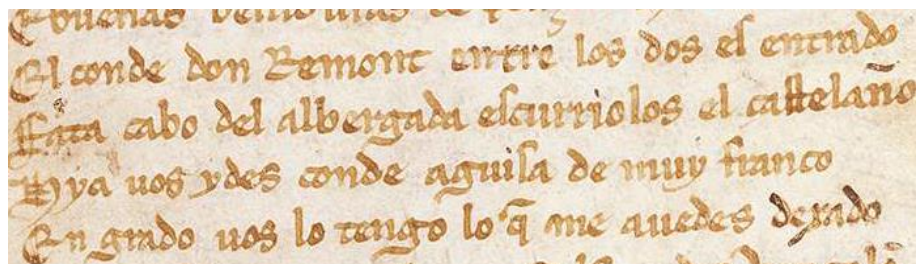 E buenas
El conde don Remont entre los dos es entrado
Fata cabo del albergada escurriolos el castelano
Hya uos ydes conde aguisa de muy franco
En grado uos lo tengo lo q̃ me auedes dexado